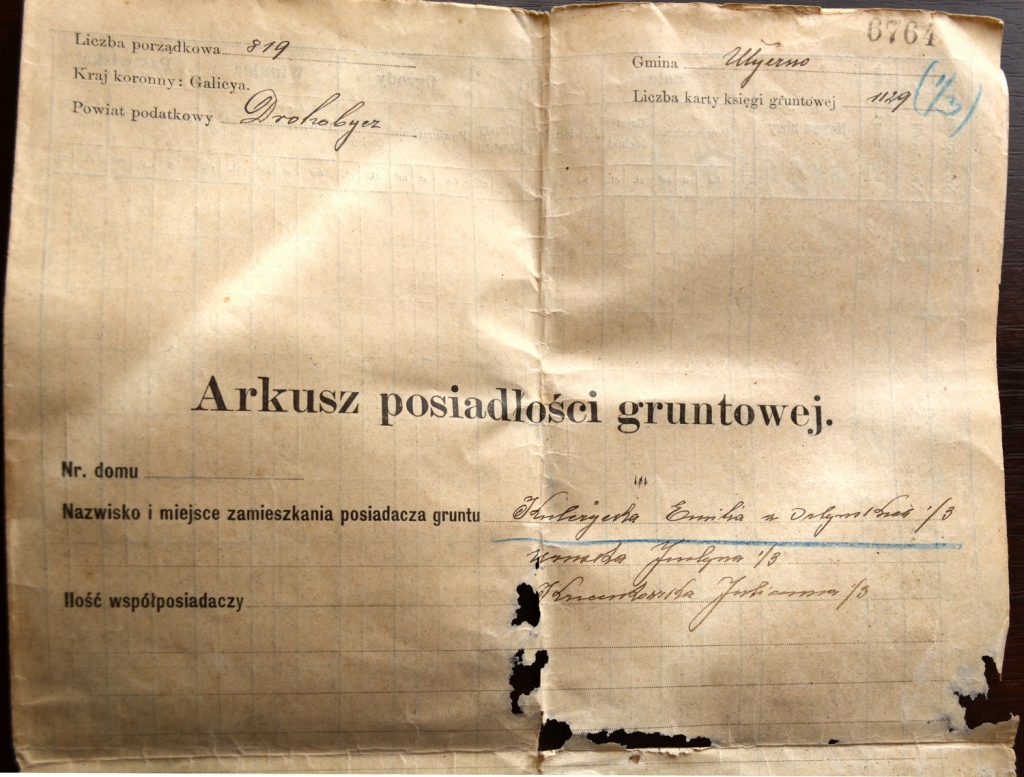 6764
Liczba porządkowa 819
Kraj koronny: Galicya.
Powiat podatkowy Drohobycz
Gmina Ulyczno
Liczba karty księgi gruntowej 1129 (1/3)
Arkusz posiadłości gruntowej.
Nr. domu
Nazwisko i miejsce zamieszkania posiadacza gruntu Emilia z 1/3
Justyna 1/3
Ilość współposiadaczy Julianna 1/3